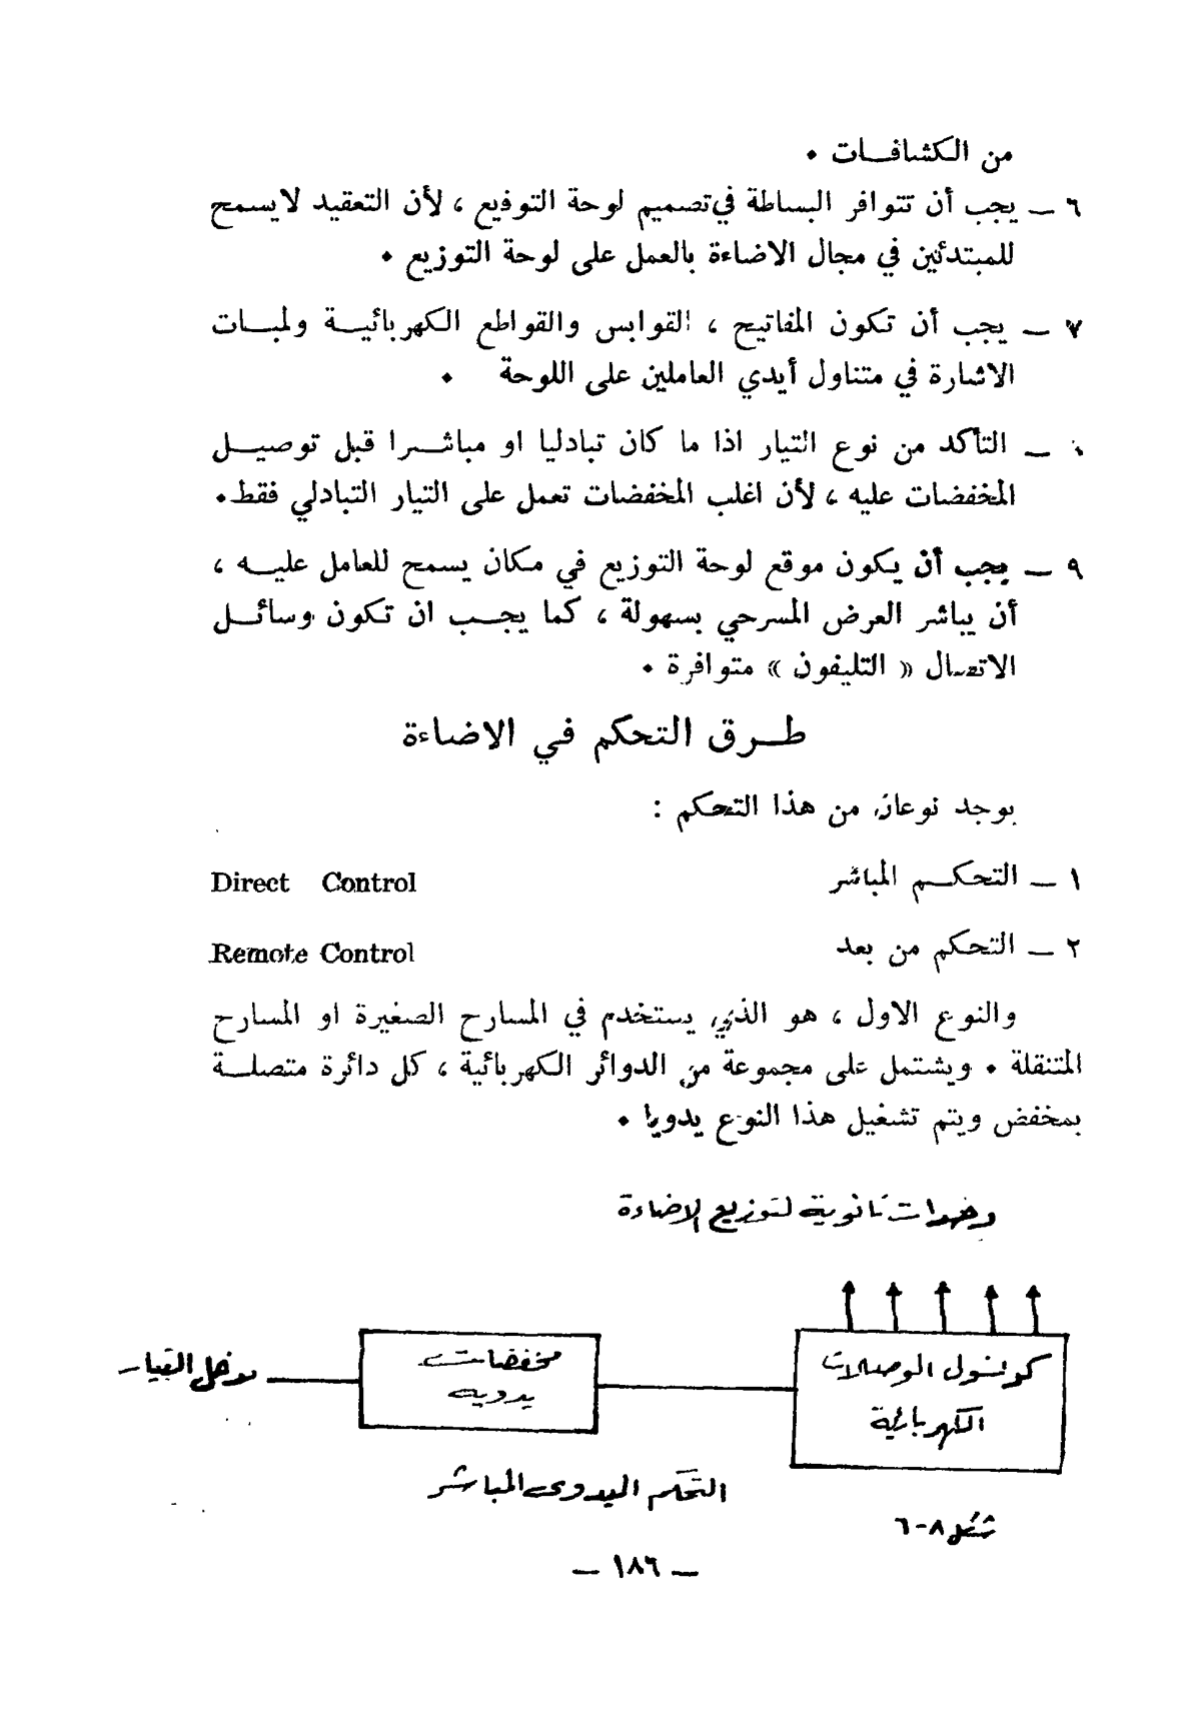 من الكشافات .
٦ – يجب أن تتوافر البساطة في تصميم لوحة التوفيع ، لأن التعقيد لايسمح
للمبتدئين في مجال الاضاءة بالعمل على لوحة التوزيع .
٧ – يجب أن تكون المفاتيح ، القوابس والقواطع الكهربائية ولمبات
الاشارة في متناول أيدي العاملين على اللوحة .
– التأكد من نوع التيار اذا ما كان تبادليا او مباشرا قبل توصيل
المخفضات عليه ، لأن اغلب المخفضات تعمل على التيار التبادلي فقط .
٩ – يجب أن يكون موقع لوحة التوزيع في مكان يسمح للعامل عليه ،
أن يباشر العرض المسرحي بسهولة ، كما يجب ان تكون وسائل
الاتصال « التليفون » متوافرة .
طرق التحكم في الاضاءة
يوجد نوعان من هذا التحكم :
١ – التحكم المباشر Direct Control
٢ – التحكم من بعد Remote Control
والنوع الاول ، هو الذي يستخدم في المسارح الصغيرة او المسارح
المتنقلة . ويشتمل على مجموعة من الدوائر الكهربائية ، كل دائرة متصلة
بمخفض ويتم تشغيل هذا النوع يدويا .
وحدات ثانوية لتوزيع الاضاءة
كونسول الوصلات
الكهربائية
مخفضات
يدوية
مدخل التيار
التحكم اليدوى المباشر
شكل ٨-٦
– ١٨٦ –